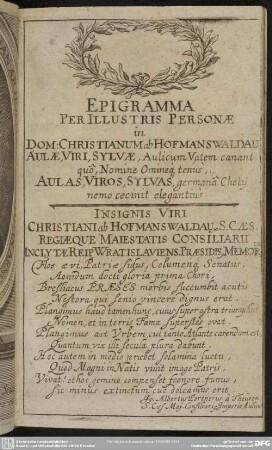 EPIGRAMMA
PER ILLUSTRIS PERSONÆ
in
DOM: CHRISTIANUM ab HOFMANSWALDAU
AULÆ VIRI, SYLVÆ, Aulicum Vatem canant
quô, Nomine Omineq tenus,
AULAS, VIROS, SYLVAS, germanâ Chely
nemo cecinit elegantius
INSIGNIS VIRI
CHRISTIANI ab HOFMANSWALDAU, S. CÆS.
REGIÆQUE MAIESTATIS CONSILIARII
INCLYTÆ REIP. WRATISLAVIENS. PRÆSIDIS, MEMOR
Flos ævi, Patriæ sidus, Columenq, Senatus,
Aonidum docti gloria prima Chori,
Breslliacus PRÆSES morbis succumbit acutis
Nestora qui senio vincere dignus erat.
Plangimus haud tamen hunc, cuius super astra triumphat
Nomen, et in terris Fama superstes ovat
Plangimus ast Urbem, cui tanto Atlante carendum est
Quantum vix illi secula plura dabunt
Hoc autem in medio præbet solamina luctu,
Quod Magni in Natis vivit imago Patris.
Vivat! et hoc gemino compenset fœnore funus,
sic minus extinctum eur dolcamus erit
S. Cæs. Maj. Consiliari, Imperii Aulicus